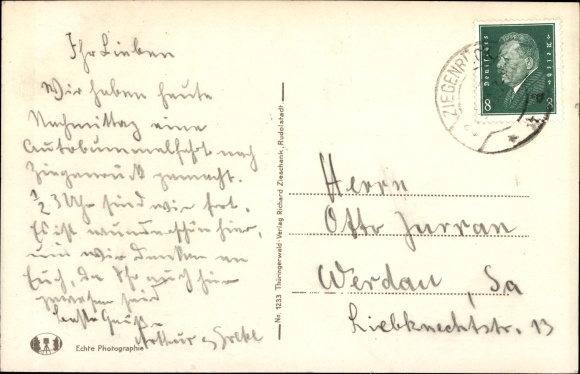 Ihr Lieben
Wir haben heute
Nachmittag eine
Autobummelfahrt nach
Ziegenrück gemacht.
1/2 3 Uhr sind wir fort.
Es ist wunderschön hier,
und wir denken an
Euch, da Ihr auch hier
gewesen seid
Beste Grüße
Arthur u.
Echte Photographie
Nr. 1233 Thüringerwald-Verlag Richard Zieschank, Rudolstadt
ZIEGENRÜ
Deutsches Reich
8 8
Herrn
Otto Jurran
Werdau, Sa
Liebknechtstr. 13